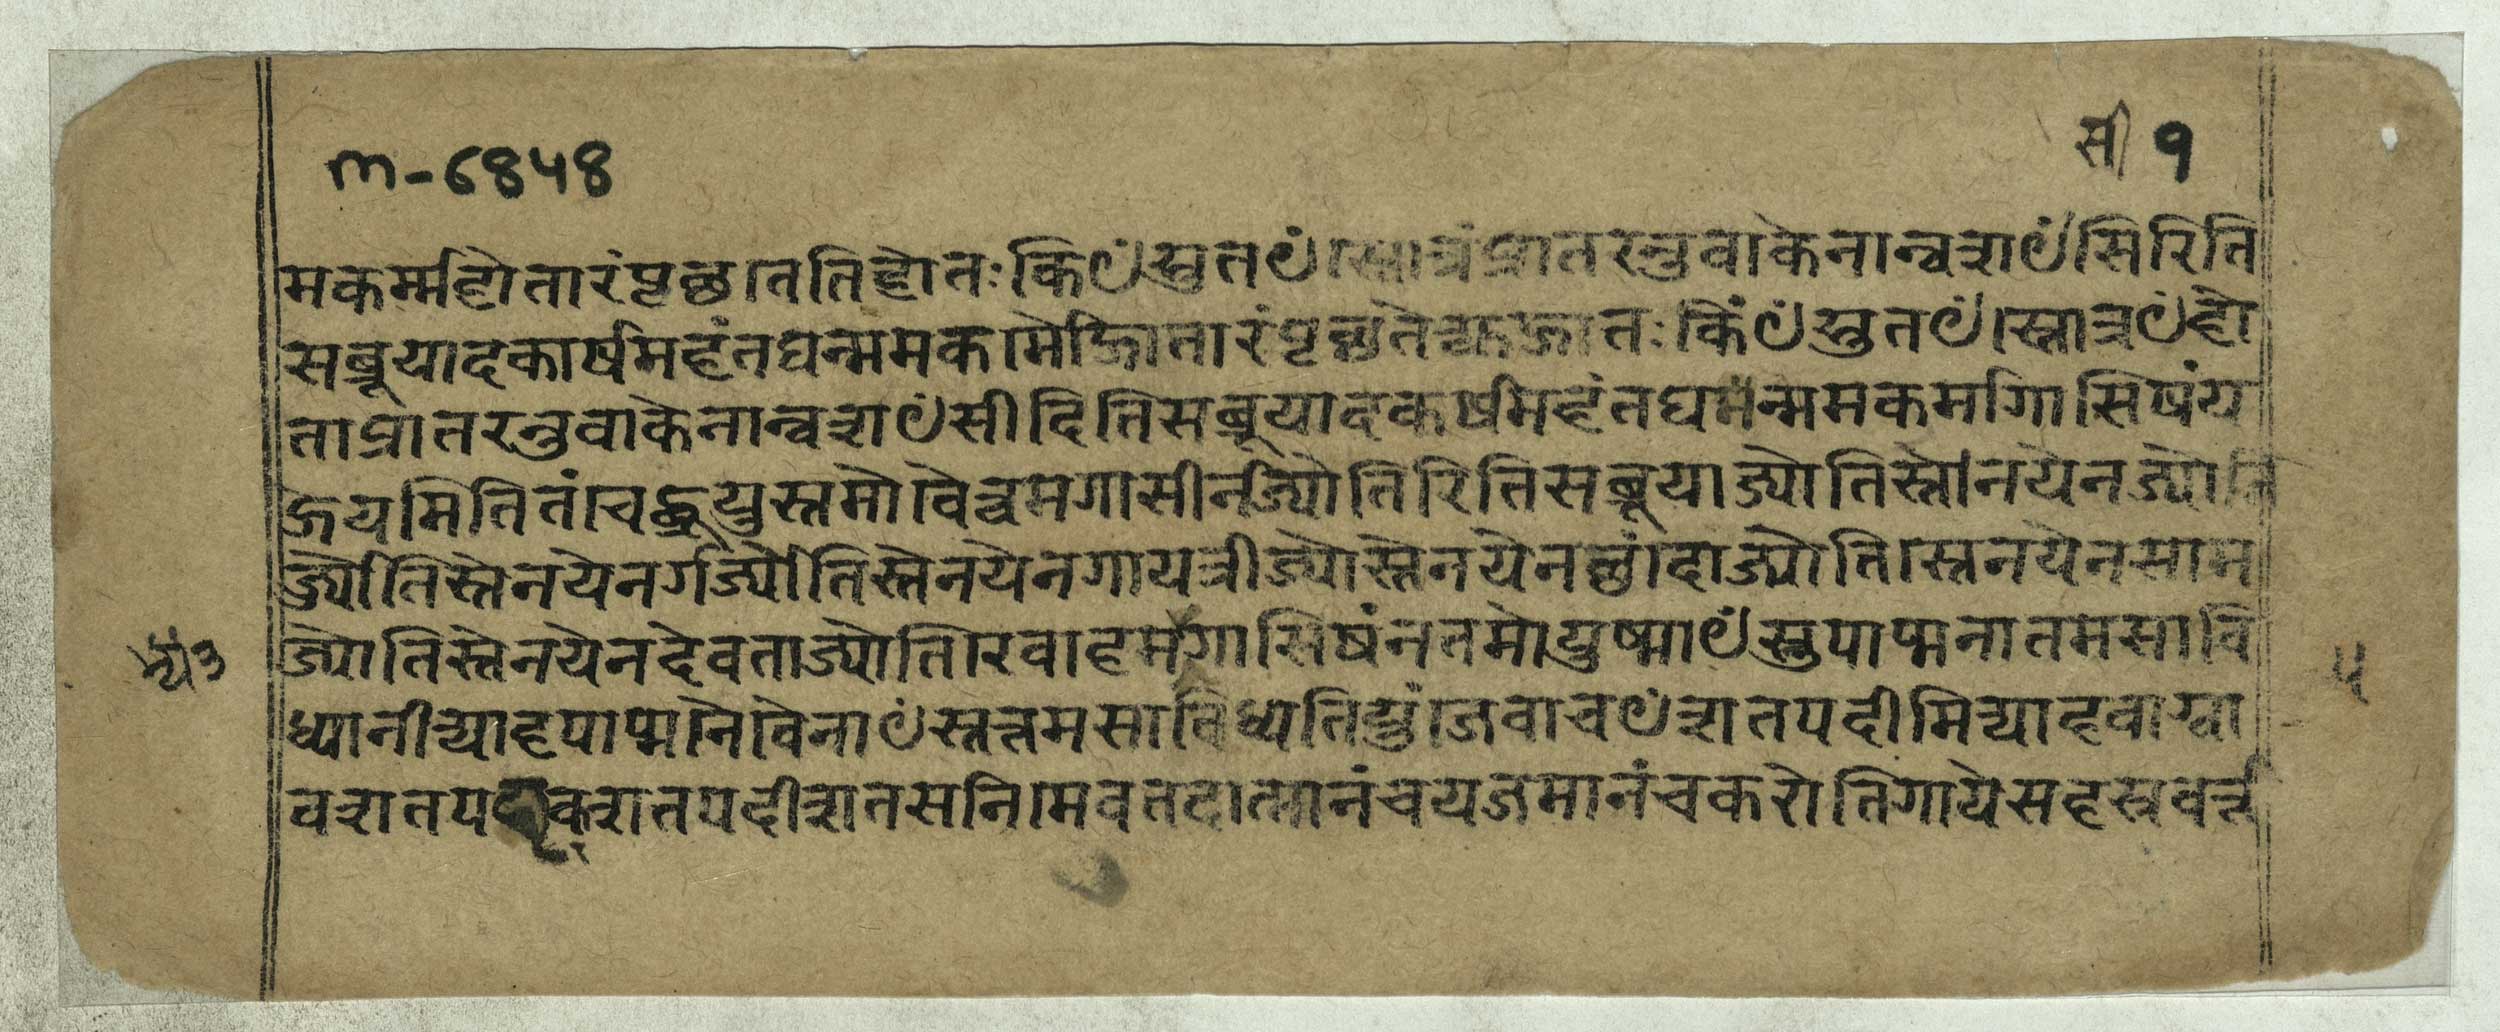 m-६४५४
सी १
मकर्म्महोतारंपृच्छातितिहोतःकिꣳस्तुतꣳस्तोत्रंप्रातरनुवाकेनान्वशꣳसिरिति
सब्रूयादकार्षमहंतद्यन्ममकर्मेतिहोतारंपृच्छते होतःकिंꣳस्तुतꣳस्तोत्रꣳहो
ताप्रातरनुवाकेनान्वशꣳसीदितिसब्रूयादकर्षमहंतद्यन्ममकर्मागासिषंय
द्गेयमितितंचेद्ब्रूयुस्तमोवैत्वमगासीर्नज्योतिरितिसब्रूयाज्योतिस्तेनयेनज्योति
र्ज्योतिस्तेनयेनर्गज्योतिस्तेनयेनगायत्रीज्योस्तेनयेनछंदोज्योतिस्तेनयेनसाम
ज्योतिस्तेनयेनदेवताज्योतिरेवाहमगासिषंनतमोयुष्माꣳस्तुपाप्मनातमसावि
ध्यानीत्याहपाप्मनैवैनाꣳस्तत्तमसाविध्यतियुंजेवाचꣳशतपदीमित्याहवाग्वा
वशतपद्यृक्शतपदीशतसनिमेवतदात्मानंचयजमानंचकरोतिगायेसहस्रवर्त्त
५